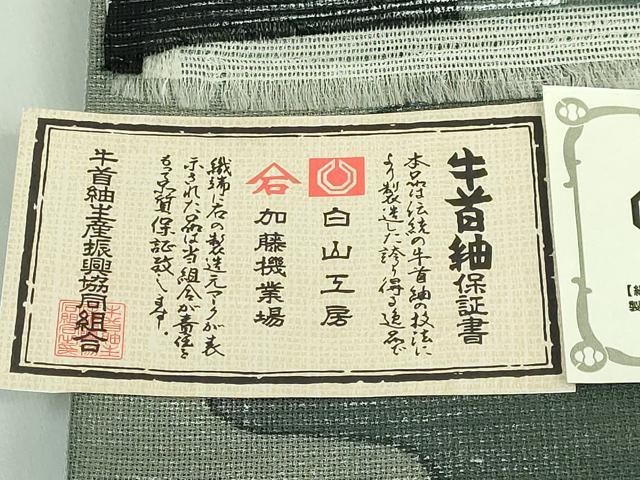 牛首紬保証書
本品は伝統の牛首紬の技法に
より製造した誇り得る逸品で
白山工房
石
加藤機業場
織端に右の製造元マークが表
示された品は当組合が責任を
もって品質保証致します
牛首紬生産振興協同組合